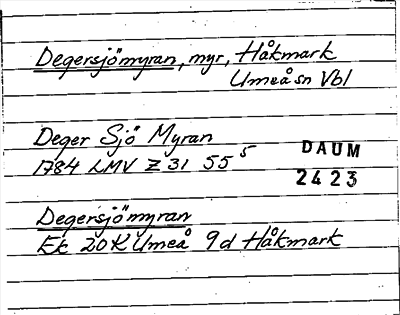 Degersjömyran, myr, Håkmark
Umeå sn Vbl
Deger Sjö Myran
1784 LMV Z 31 55 5
DAUM
2423
Degersjömyran
Ek 20 K Umeå 9d Håkmark